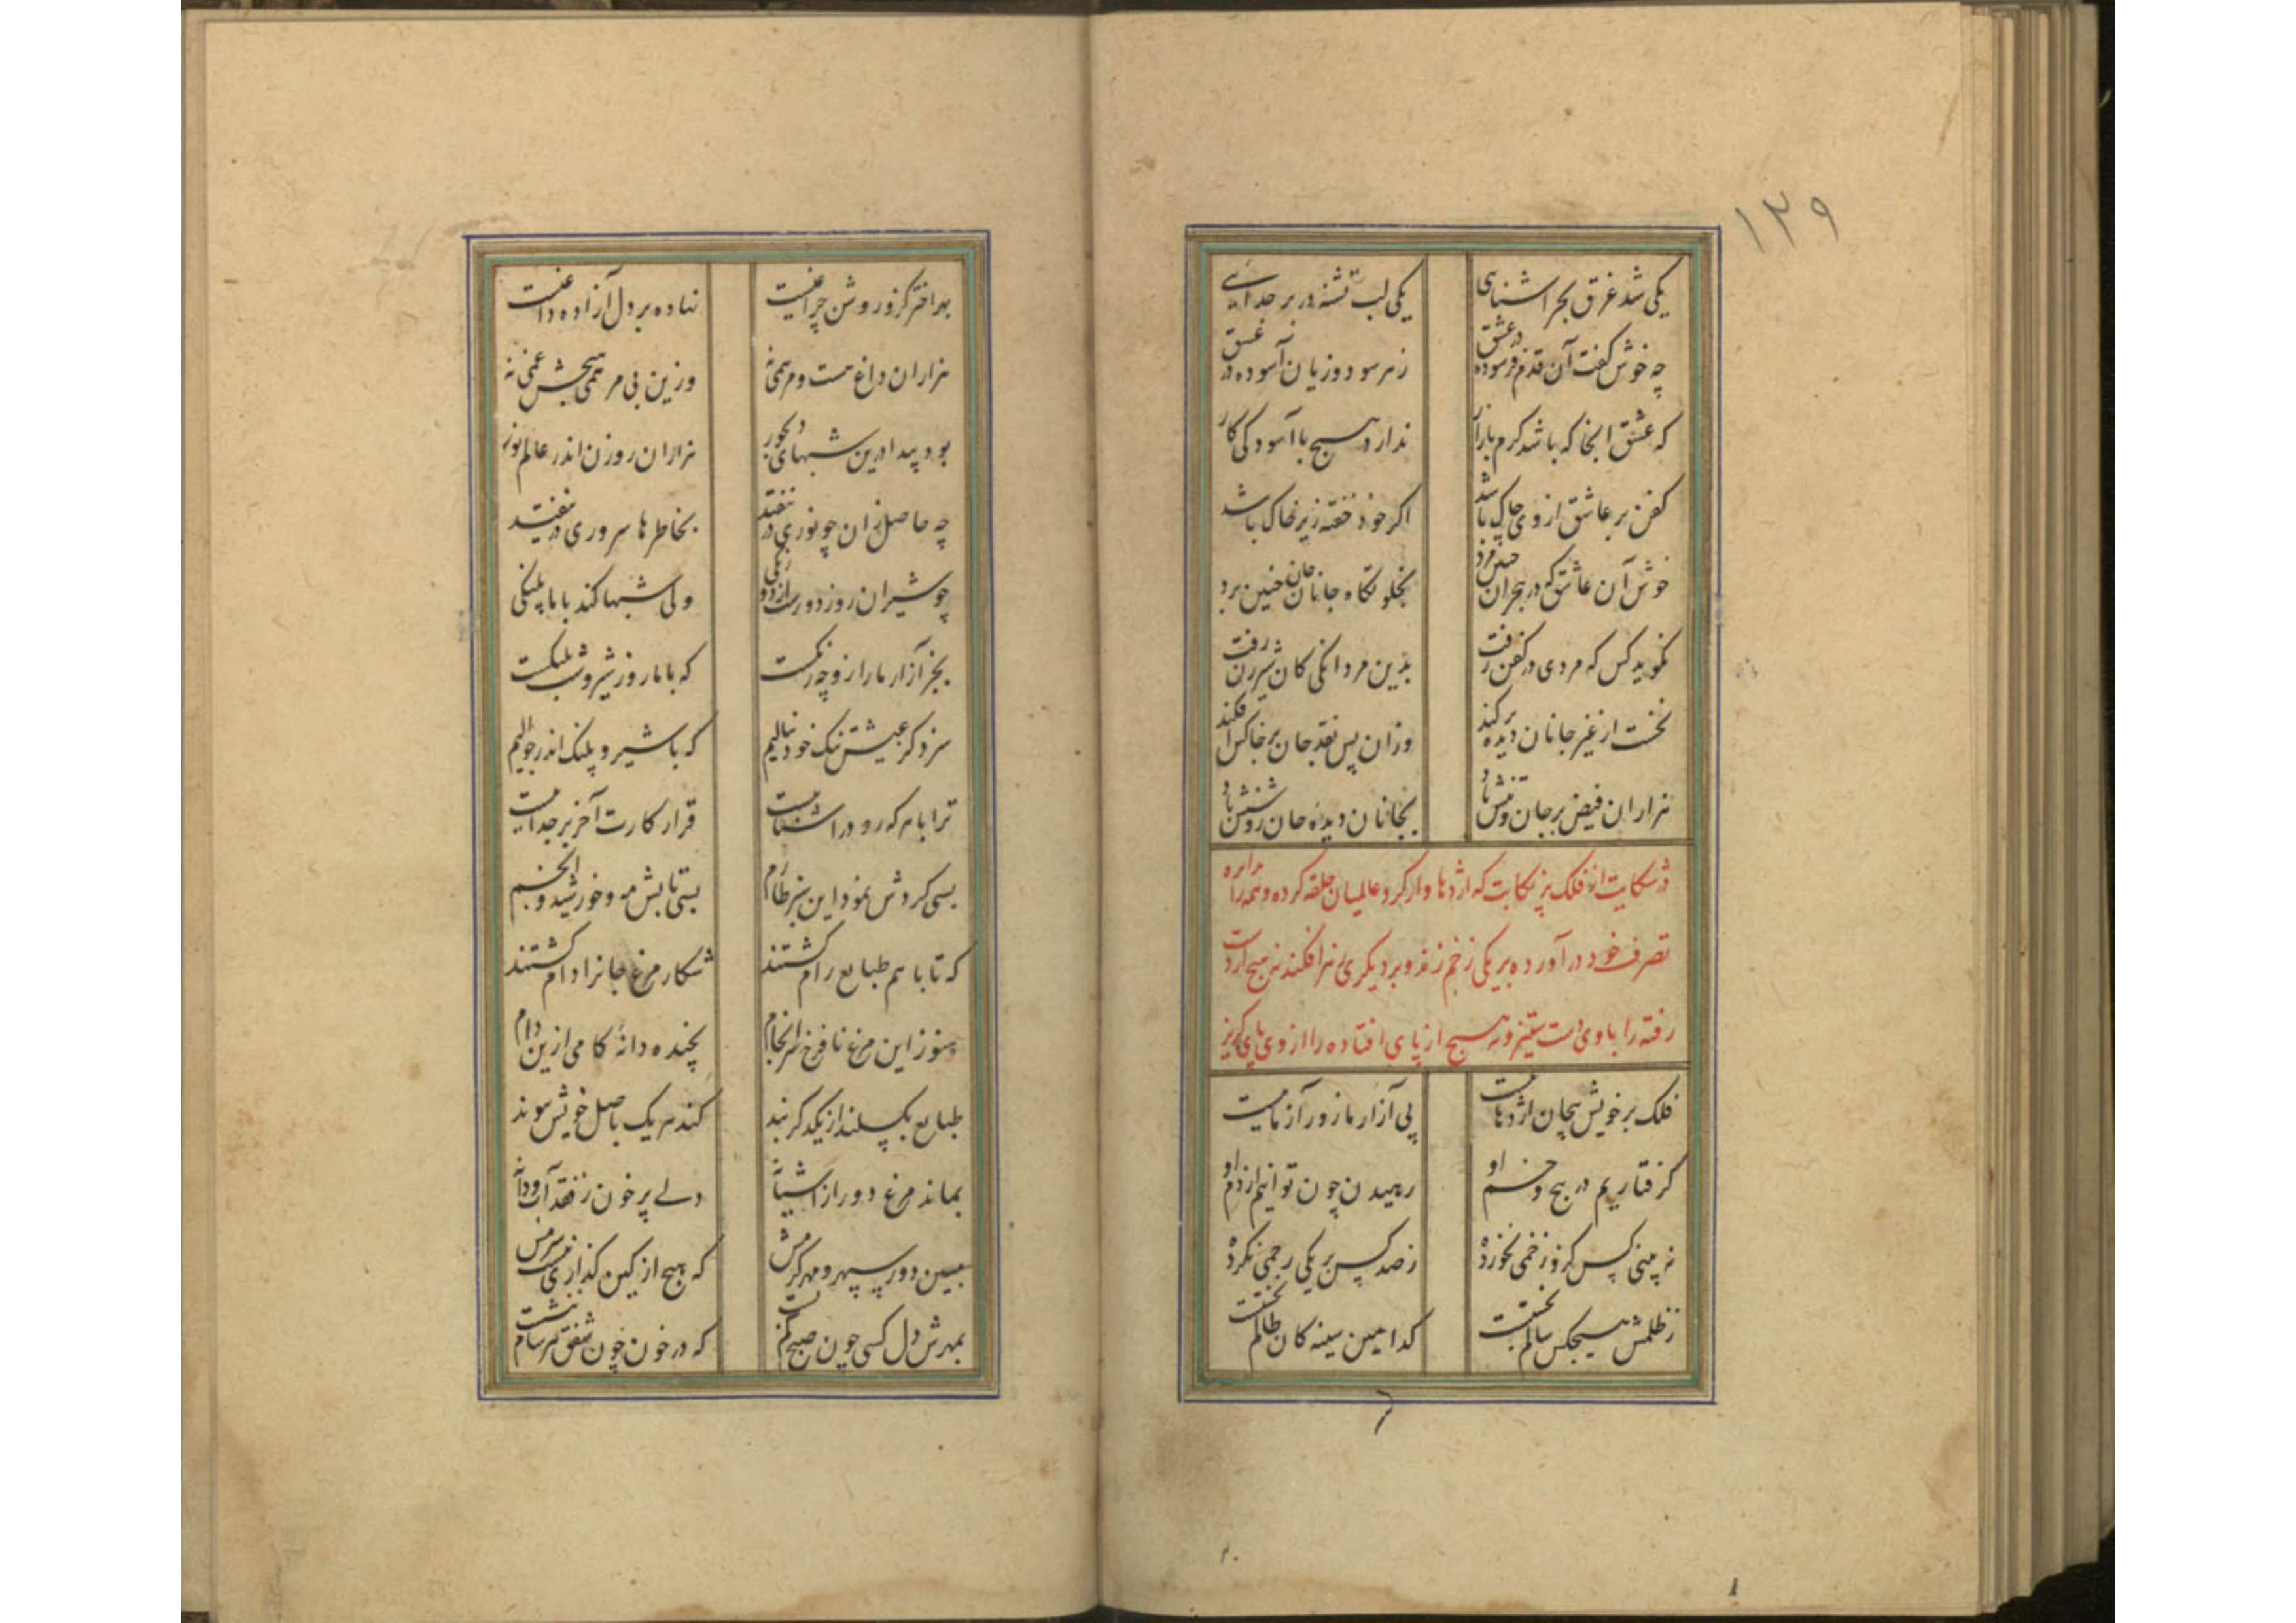 ۱۳۹
یکی شد غرق بحر آشنایی یکی لب تشنه در بر جدایی
چه خوش گفت آن قدم فرسوده در عشق ز هر سود و زیان آسوده در عشق
که عشق آنجا که باشد گرم بازار ندارد هیچ با آسودگی کار
کفن بر عاشق از وی چاک باشد اگر خود خفته زیر خاک باشد
خوش آن عاشق که در هجران چنین مرد بخلوتگاه جانان جان چنین برد
نگوید کس که مردی در کفن رفت بدین مردانگی کان شیرزن رفت
نخست از غیر جانان دیده برکند وزان پس نقد جان بر خاکش افکند
هزاران فیض بر جان و تنش باد بجانان دیده جان روشنش باد
در شکایت از فلک پر نکایت که اژدهاوار گرد عالمیان حلقه کرده و همه را در دایره
تصرف خود در آورده بر یکی زخم زند و بر دیگری زهر افکند نه هیچ از دست
رفته را با وی دست ستیز و نه هیچ از پای افتاده را از وی پای گریز
فلک بر خویش پیچان اژدهاییست پی آزار ما زورآزماییست
گرفتاریم در پیچ و خم او رهیدن چون توانیم از دم او
نه بینی کس کزو زخمی نخورده ز صد کس بر یکی رحمی نکرده
ز ظلمش هیچکس سالم نجستست کدامین سینه کان ظالم نخستست
بهر اختر کزو روشن چراغیست نهاده بر دل آزاده داغیست
هزاران داغ هست و مرهمی نه وزین بی مرهمی هیچش غمی نه
بود پیدا درین شبهای دیجور هزاران روزن اندر عالم نور
چه حاصل زان چو نوری در نیفتد بخاطرها سروری در نیفتد
چو شیران روز دورست از دورنگی ولی شبها کند با ما پلنگی
بجز آزار ما را زو چه رنگست که با ما روز شیر و شب پلنگست
سزد کر عیش تنگ خود بنالیم که با شیر و پلنگ اندر جوالیم
ترا با هر که رو در آشناییست قرار کارت آخر بر جداییست
بسی گردش نمود این سبز طارم بسی تابش مه و خورشید و انجم
که تا با هم طبایع رام گشتند شکار مرغ جانرا دام گشتند
هنوز این مرغ نافرخ سرانجام نچیده دانه کامی ازین دام
طبایع بگسلند از یکدگر بند کند هر یک باصل خویش پیوند
بماند مرغ دور از آشیانه دلی پر خون ز فقد آب و دانه
مبین دور سپهر و مهر گرمش که هیچ از کین گذاری نیست شرمش
بمهرش دل کسی چون صبح کم بست که در خون چون شفق هر شام ننشست